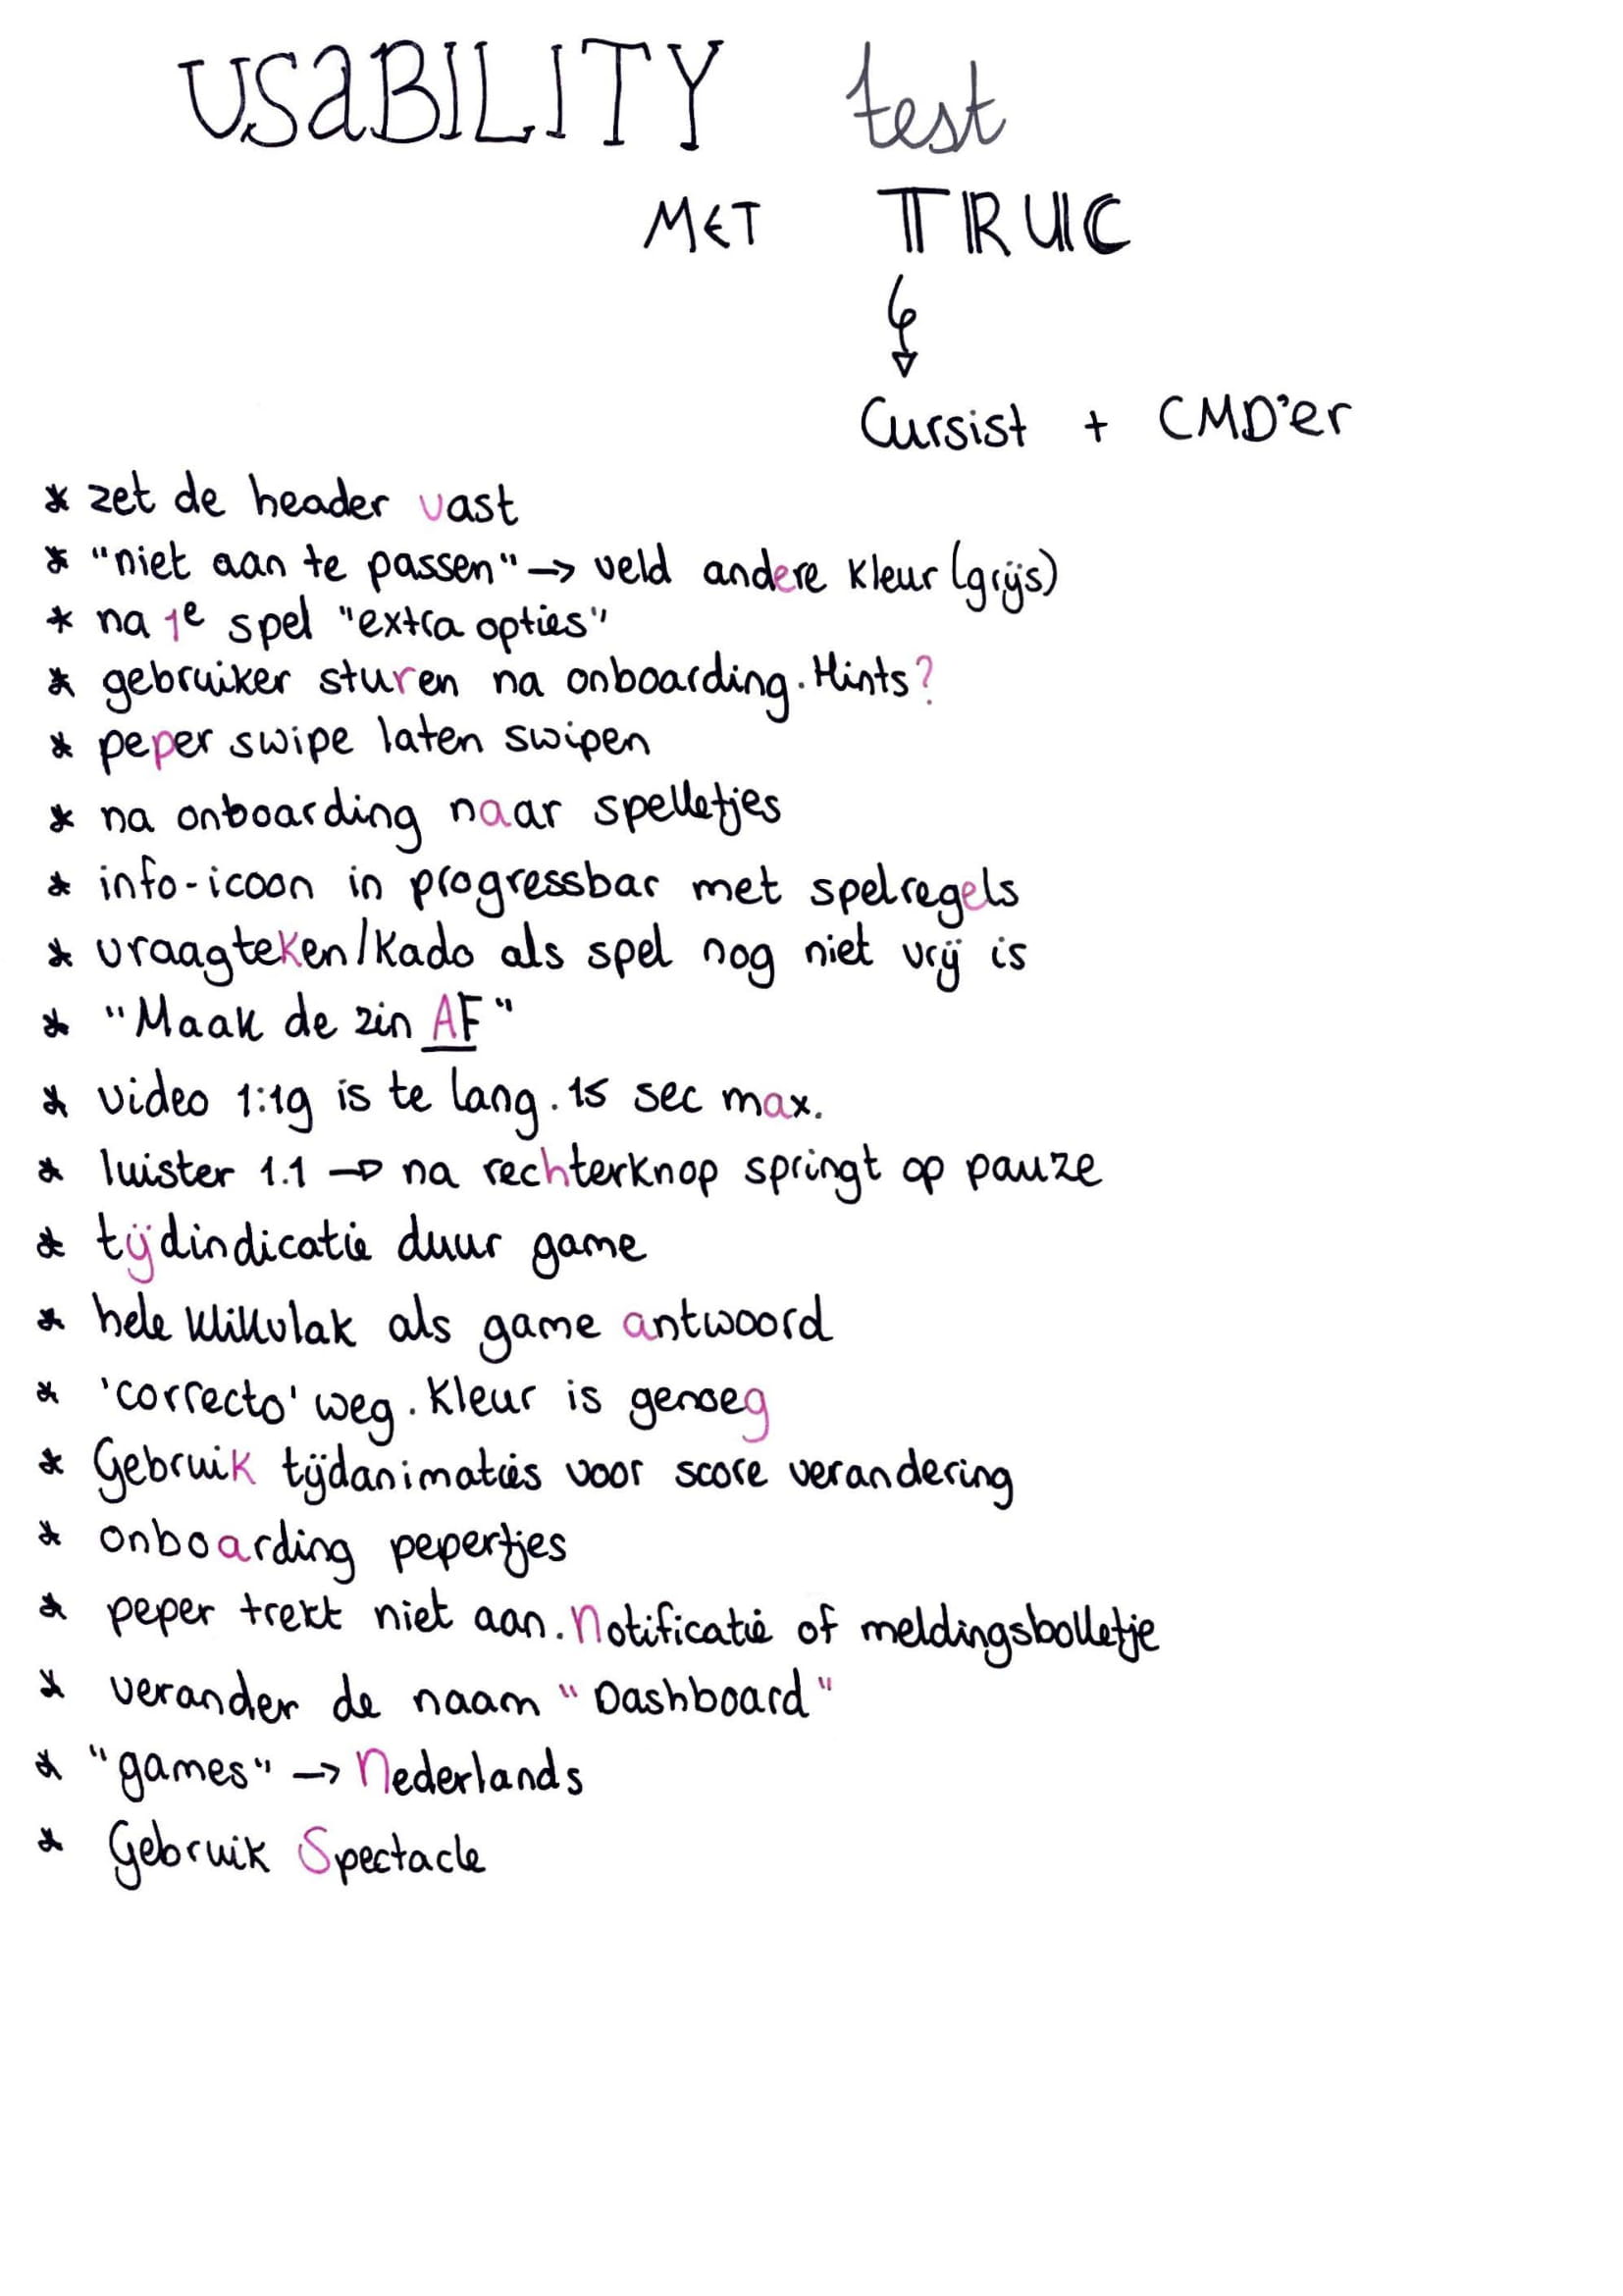 USaBILITY test
MET TRUC
Cursist + CMD'er
* zet de header vast
* "niet aan te passen" → veld andere kleur (grijs)
* na 1e spel "extra opties"
* gebruiker sturen na onboarding. Hints?
* peper swipe laten swipen
* na onboarding naar spelletjes
* info-icoon in progressbar met spelregels
* vraagteken/kado als spel nog niet vrij is
* "Maak de zin AF"
* video 1:19 is te lang. 15 sec max.
* luister 1.1 → na rechterknop springt op pauze
* tijdindicatie duur game
* hele klikvlak als game antwoord
* 'correcto' weg. Kleur is genoeg
* Gebruik tijdanimaties voor score verandering
* onboarding pepertjes
* peper trekt niet aan. Notificatie of meldingsbolletje
* verander de naam "Dashboard"
* "games" → Nederlands
* Gebruik Spectacle